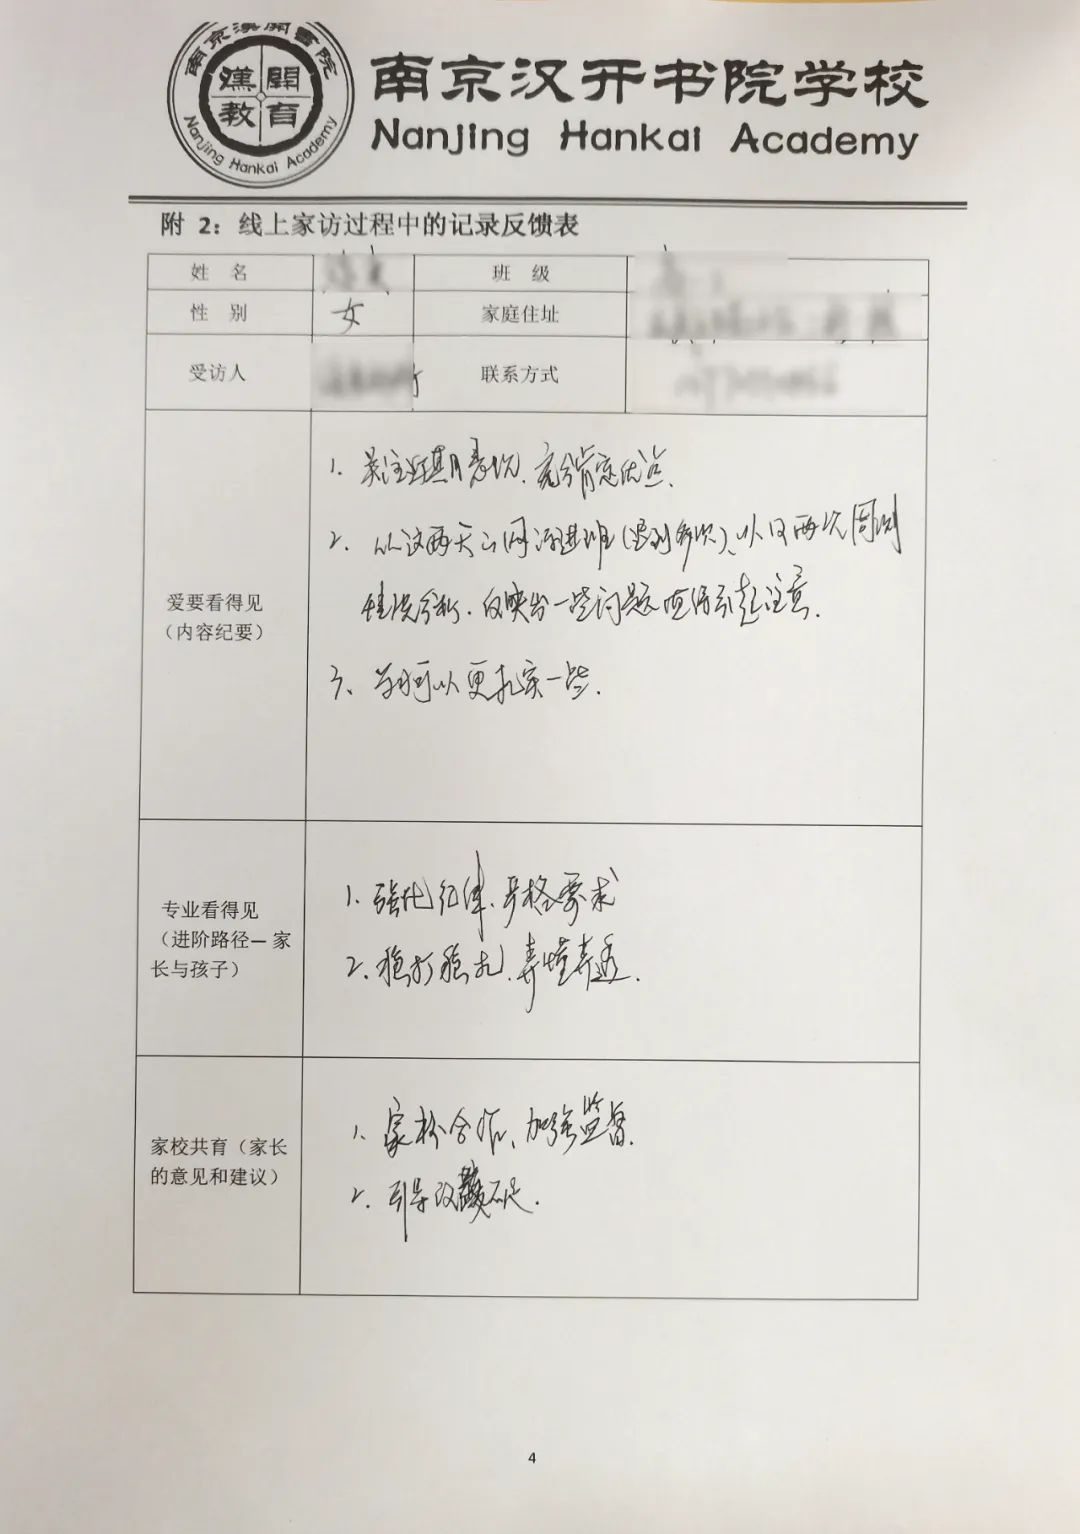 南京漢開書院
漢開
教育
Nanjing Hankai Academy
南京汉开书院学校
Nanjing Hankai Academy
附 2：线上家访过程中的记录反馈表
姓 名
班 级
性 别 女 家庭住址
受访人 联系方式
爱要看得见
（内容纪要）
1. 关注近期表现、充分肯定优点.
2. 从这两天上网课进班（迟到多次）、以及两次周测
情况分析，反映出一些问题应值引起注意.
3、学习可以更扎实一些.
专业看得见
（进阶路径— 家
长与孩子）
1. 强化纪律、严格要求
2. 稳打稳扎、弄懂弄透.
家校共育（家长
的意见和建议）
1、家校合作、加强监督.
2. 引导改不足.
4